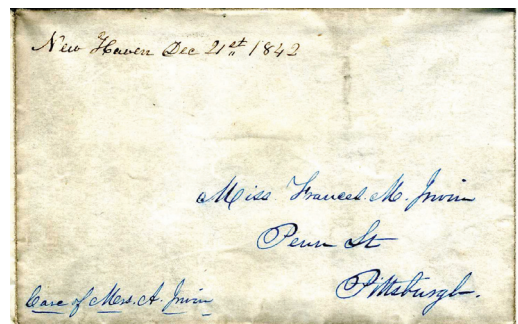 New Haven Dec 21st 1842
Miss Frances. M. Irwin
Penn St
Pittsburgh.
Care of Mrs. A. Irwin